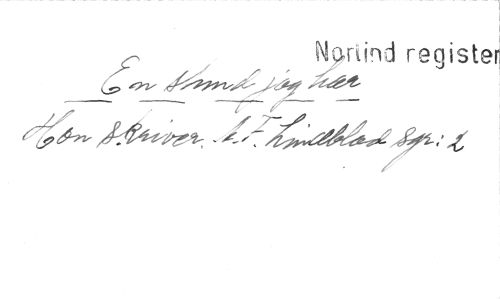 Norlind register
En stund jag har
Hon skriver. A. F. Lindblad sgr: 2